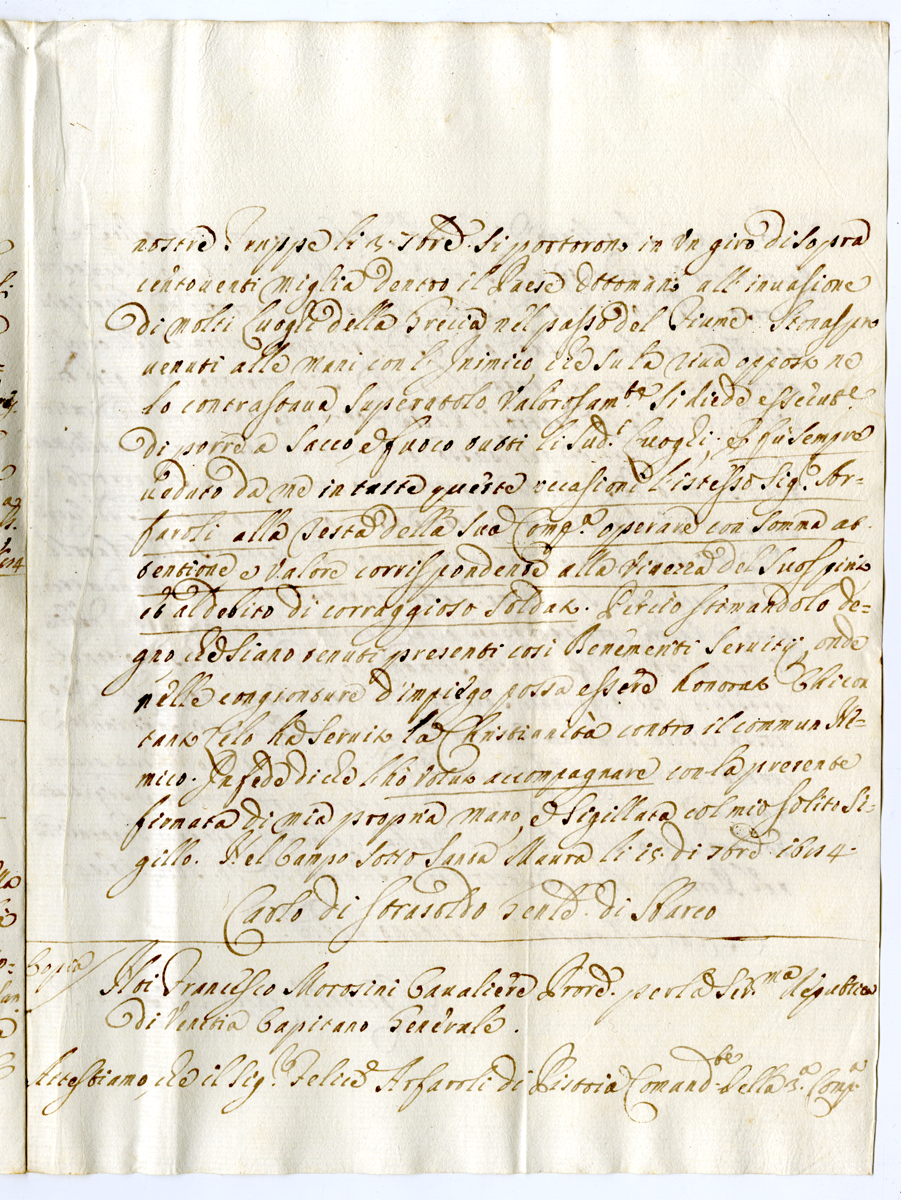 nostre Truppe li 2 7bre si portorono in un giro di sopra
centoventi miglia dentro il Paese Ottomano all' invasione
di molti Luoghi della Grecia nel passo del Fiume
venuti alle mani con l' Inimico che su la riva opposta ne
lo contrastava, superatolo Valorosam.te si diede essecut.e
di porre a sacco, e fuoco tutti li sud.i Luoghi, e fu sempre
veduto da me in tutte queste occasioni l'istesso Sig.e Ar-
faroli alla testa della sua Comp.a operare con somma at-
tentione e Valore corrispondente alla Vivezza del suo spirito
et al debito di corraggioso soldato. Perciò stimandolo de=
gno che siano tenuti presenti così Benemeriti servitij, onde
nelle congionture d'impiego possa essere honorato Chi con
tanto Zelo ha servito la Christianità contro il commun Ne=
mico. In fede di che l'ho voluto accompagnare con la presente
firmata di mia propria mano, e sigillata col mio solito Si=
gillo. Nel Campo sotto Santa Maura li 15 di 7bre 1684.
Carlo di Strasoldo Genle. di Sbarco
Copia
Noi Francesco Morosini Cavaliere Prore. per la Ser.ma Republica
di Venetia Capitano Generale.
Attestiamo, che il Sig.e Felice Arfaroli di Pistoia Comand.te della 3.a Comp.a